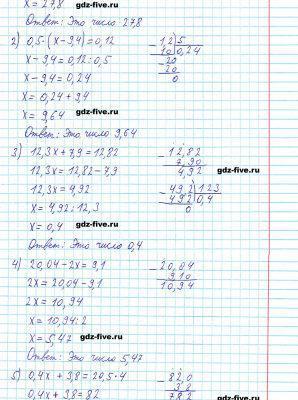 x = 27,8
gdz-five.ru
Ответ: Это число 27,8
2) 0,5·(x-9,4)=0,12
x-9,4=0,12:0,5
x-9,4=0,24
x=0,24+9,4
x=9,64
Ответ: Это число 9,64
1,2|5
10|0,24
20
20
0
gdz-five.ru
gdz-five.ru
3) 12,3x+7,9=12,82
12,3x=12,82-7,9
12,3x=4,92
x=4,92:12,3
x=0,4
Ответ: Это число 0,4
12,82
7,90
4,92
49,2|123
49,2|0,4
0
gdz-five.ru
4) 20,04-2x=9,1
2x=20,04-9,1
2x=10,94
x=10,94:2
x=5,47
Ответ: Это число 5,47
20,04
9,10
10,94
gdz-five.ru
gdz-five.ru
5) 0,4x+3,8=20,5·4
0,4x+3,8=82
82,0
3,8
78,2
gdz-five.ru